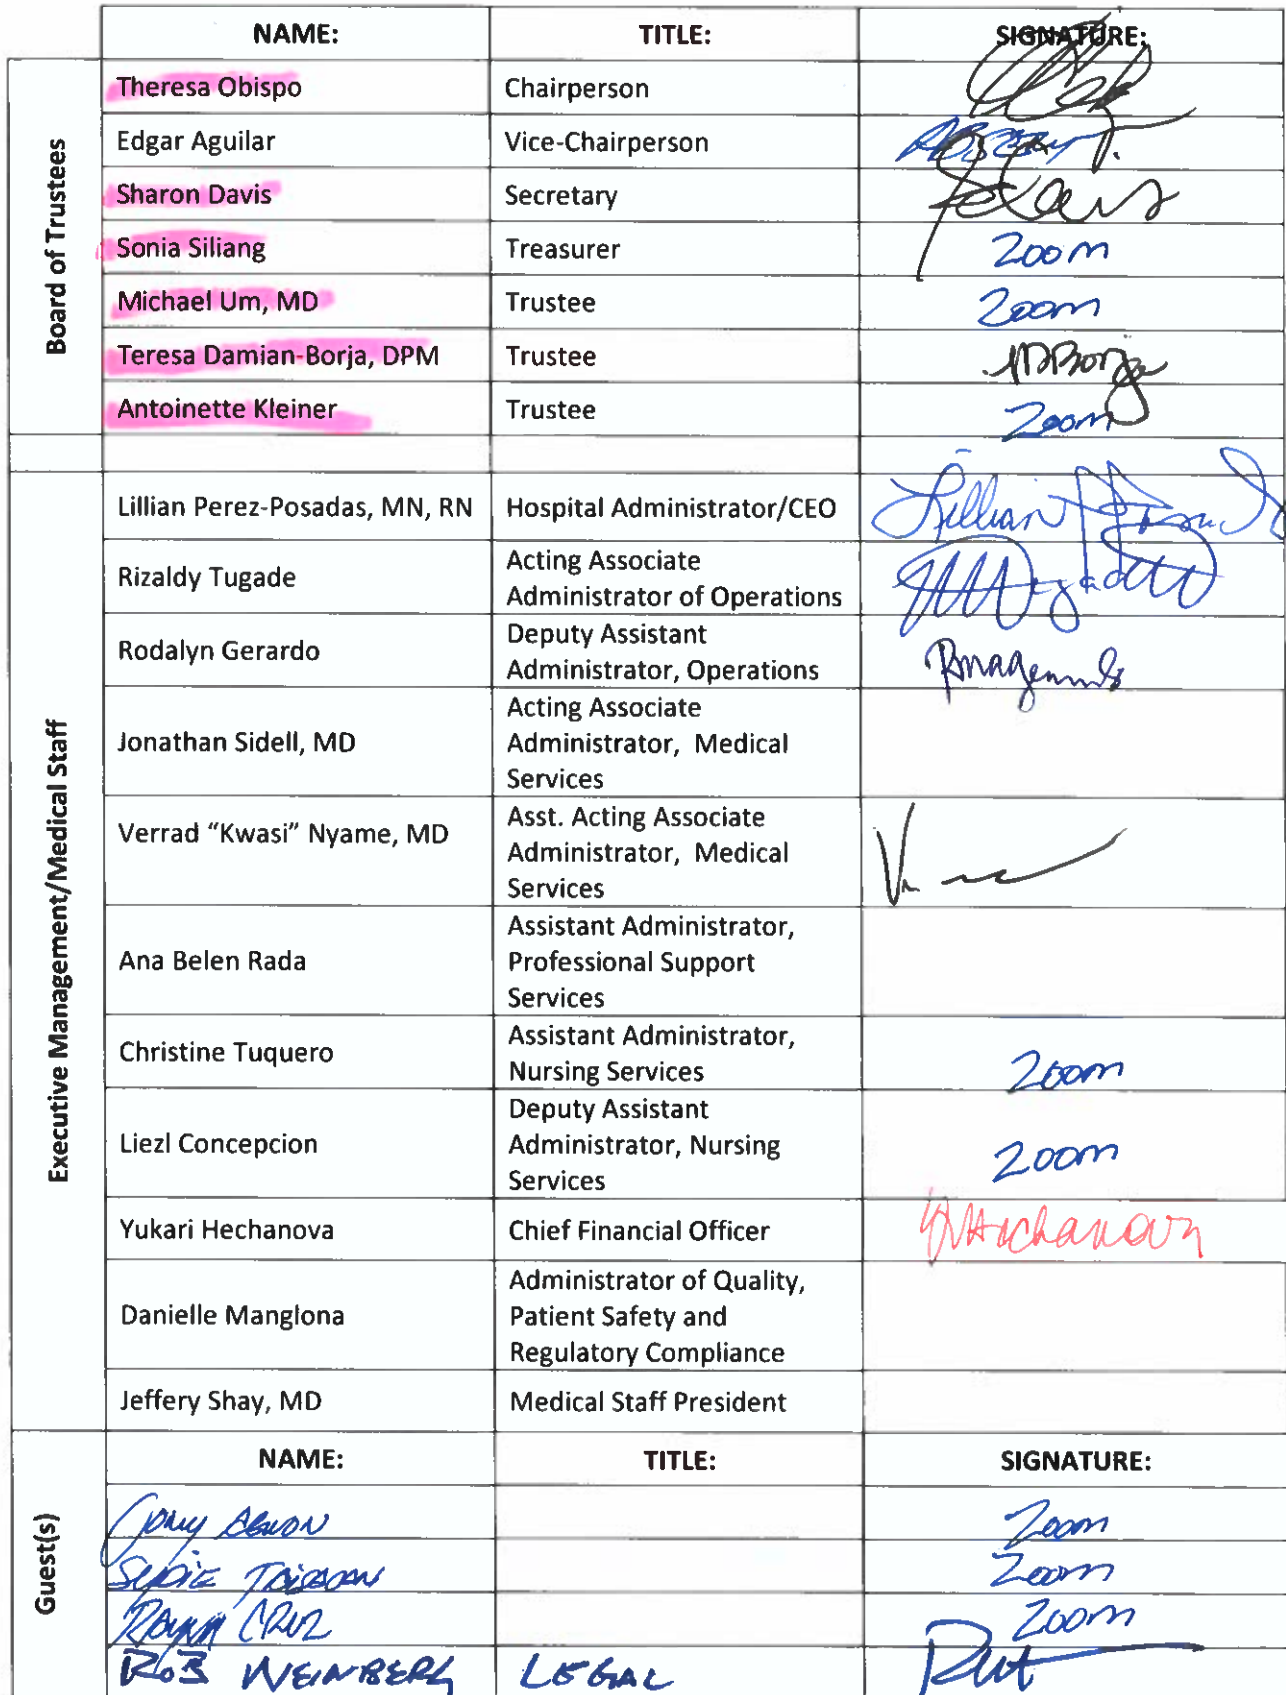 NAME: TITLE: SIGNATURE:
Board of Trustees
Theresa Obispo Chairperson
Edgar Aguilar Vice-Chairperson
Sharon Davis Secretary
Sonia Siliang Treasurer Zoom
Michael Um, MD Trustee Zoom
Teresa Damian-Borja, DPM Trustee
Antoinette Kleiner Trustee Zoom
Executive Management/Medical Staff
Lillian Perez-Posadas, MN, RN Hospital Administrator/CEO Lillian
Rizaldy Tugade Acting Associate
Administrator of Operations
Rodalyn Gerardo Deputy Assistant
Administrator, Operations
Jonathan Sidell, MD Acting Associate
Administrator, Medical
Services
Verrad “Kwasi” Nyame, MD Asst. Acting Associate
Administrator, Medical
Services
Ana Belen Rada Assistant Administrator,
Professional Support
Services
Christine Tuquero Assistant Administrator,
Nursing Services Zoom
Liezl Concepcion Deputy Assistant
Administrator, Nursing
Services Zoom
Yukari Hechanova Chief Financial Officer
Danielle Manglona Administrator of Quality,
Patient Safety and
Regulatory Compliance
Jeffery Shay, MD Medical Staff President
NAME: TITLE: SIGNATURE:
Guest(s)
Zoom
Zoom
CRUZ Zoom
ROB WEINBERG LEGAL